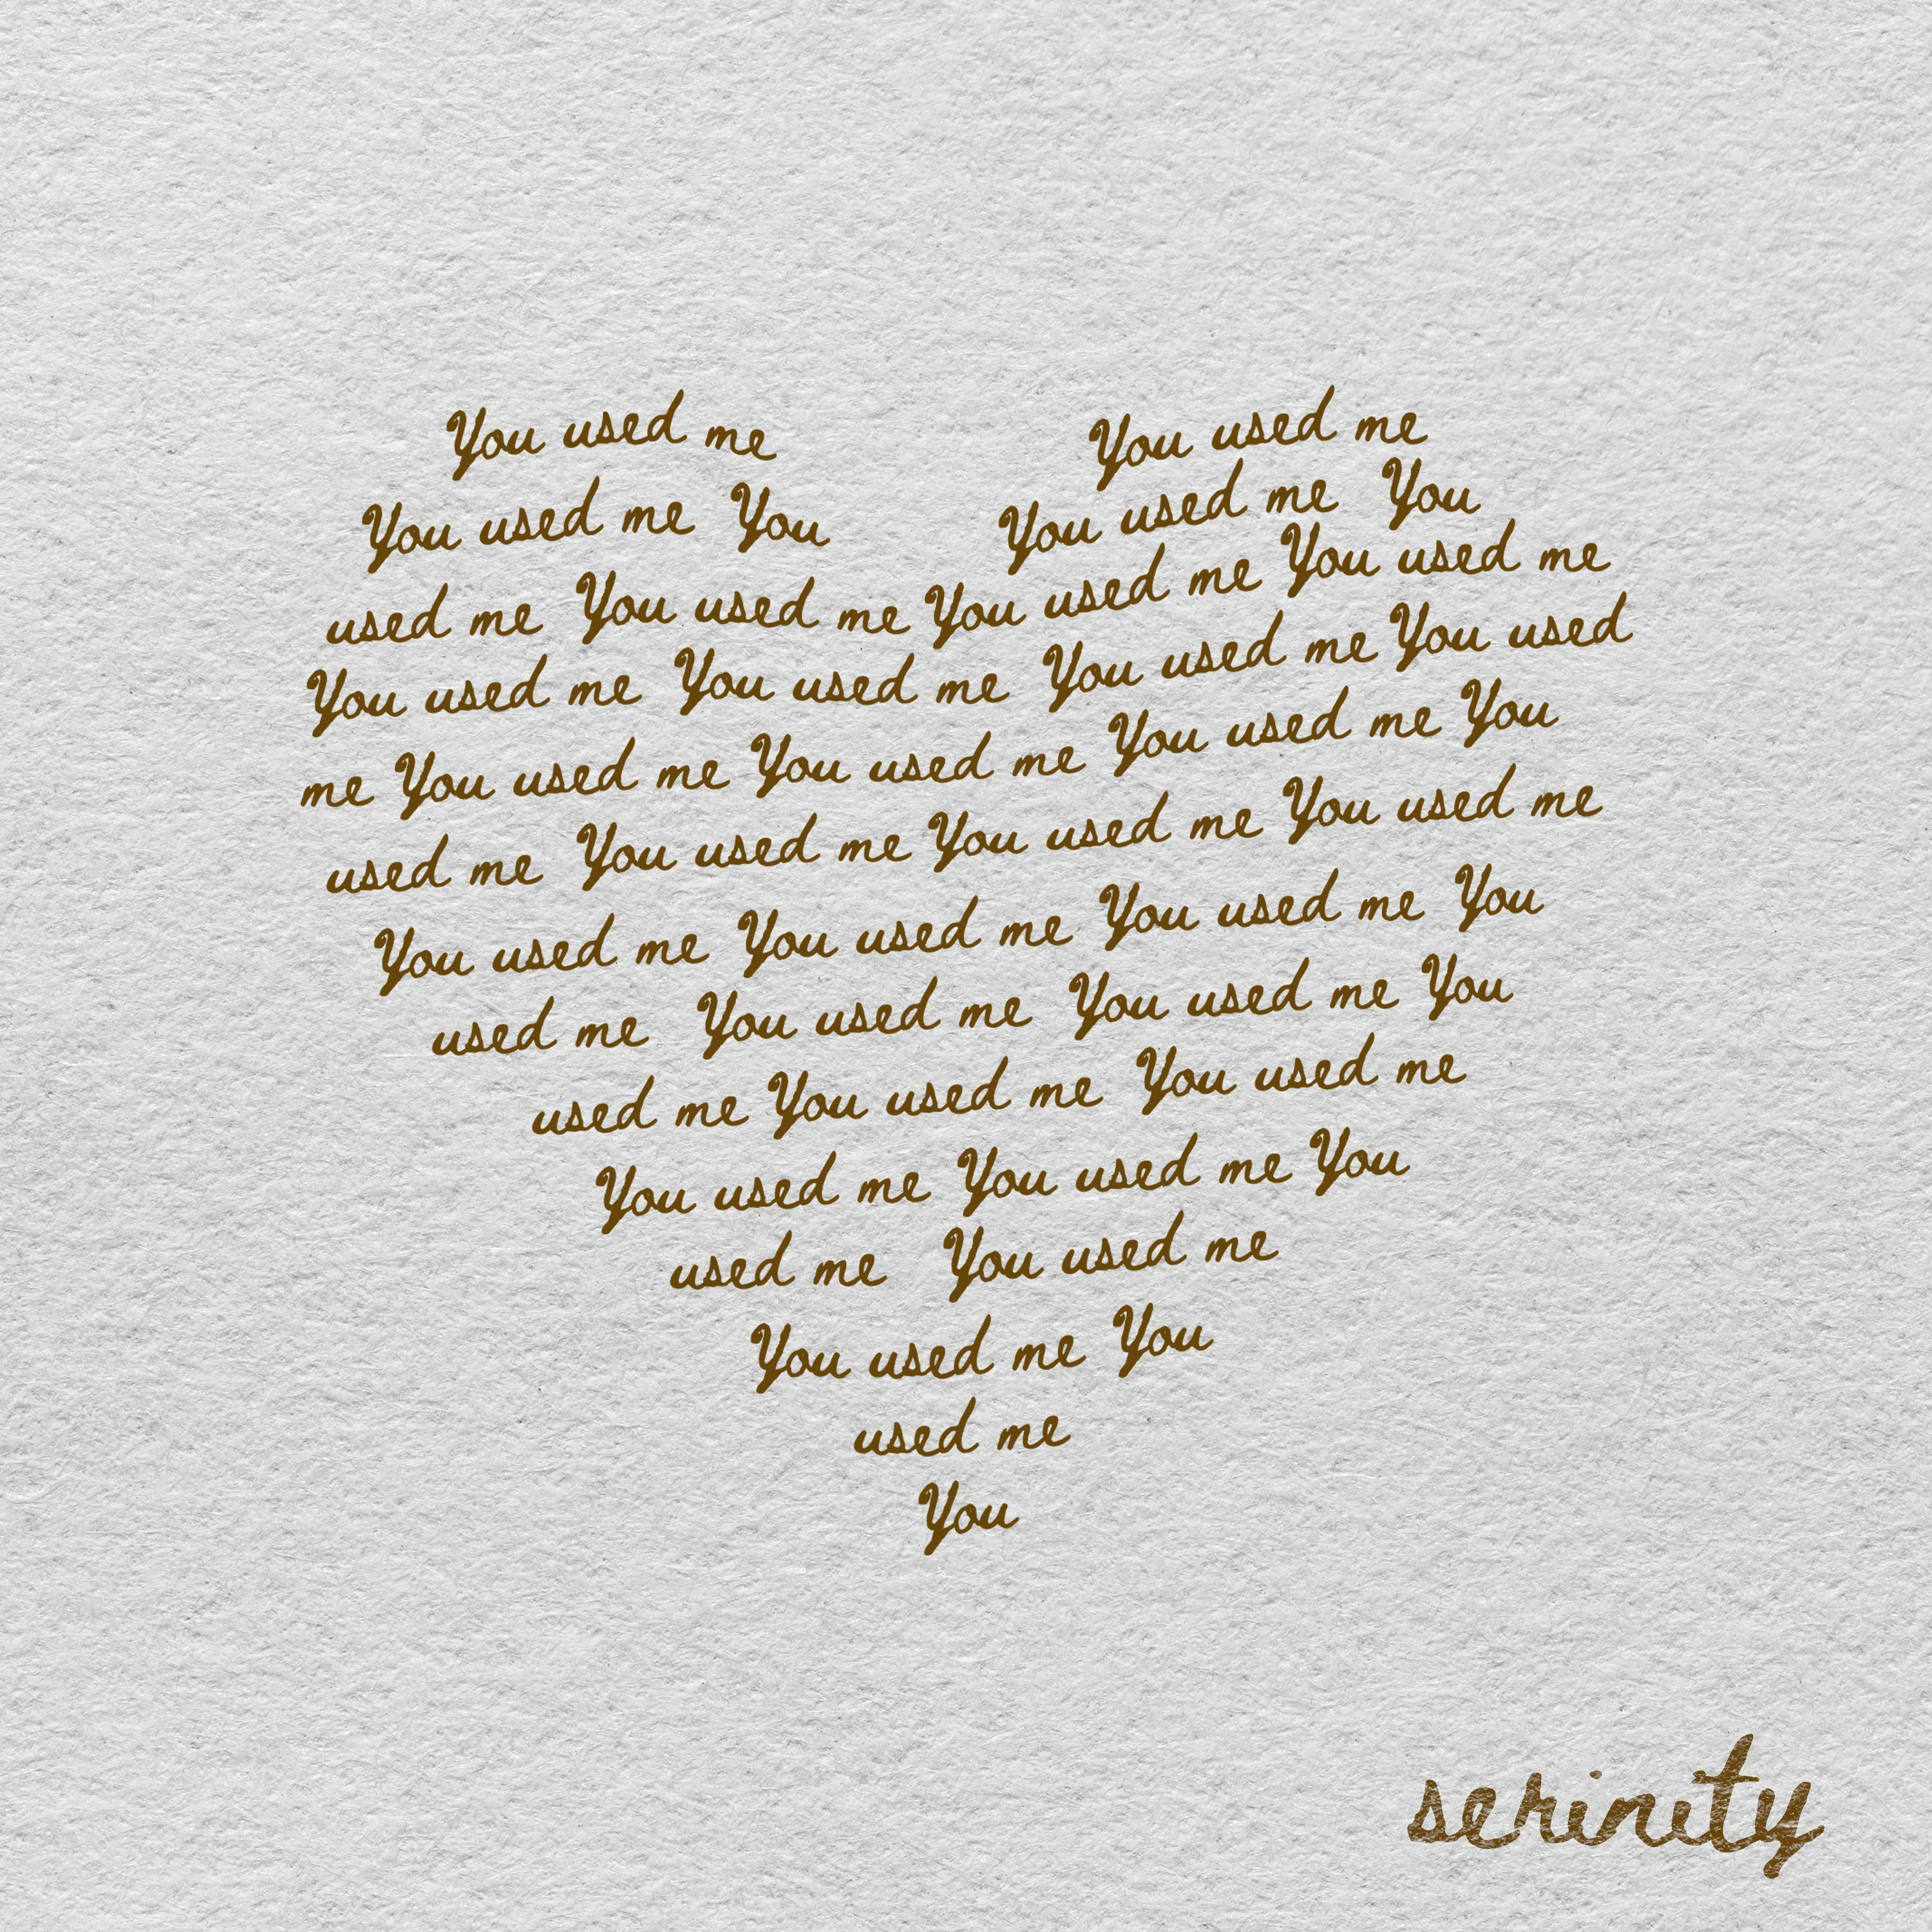 You used me You used me
You used me You You used me You
used me You used me You used me You used me
You used me You used me You used me You used
me You used me You used me You used me You
used me You used me You used me You used me
You used me You used me You used me You
used me You used me You used me You
used me You used me You used me
You used me You used me You
used me You used me
You used me You
used me
You
serinity